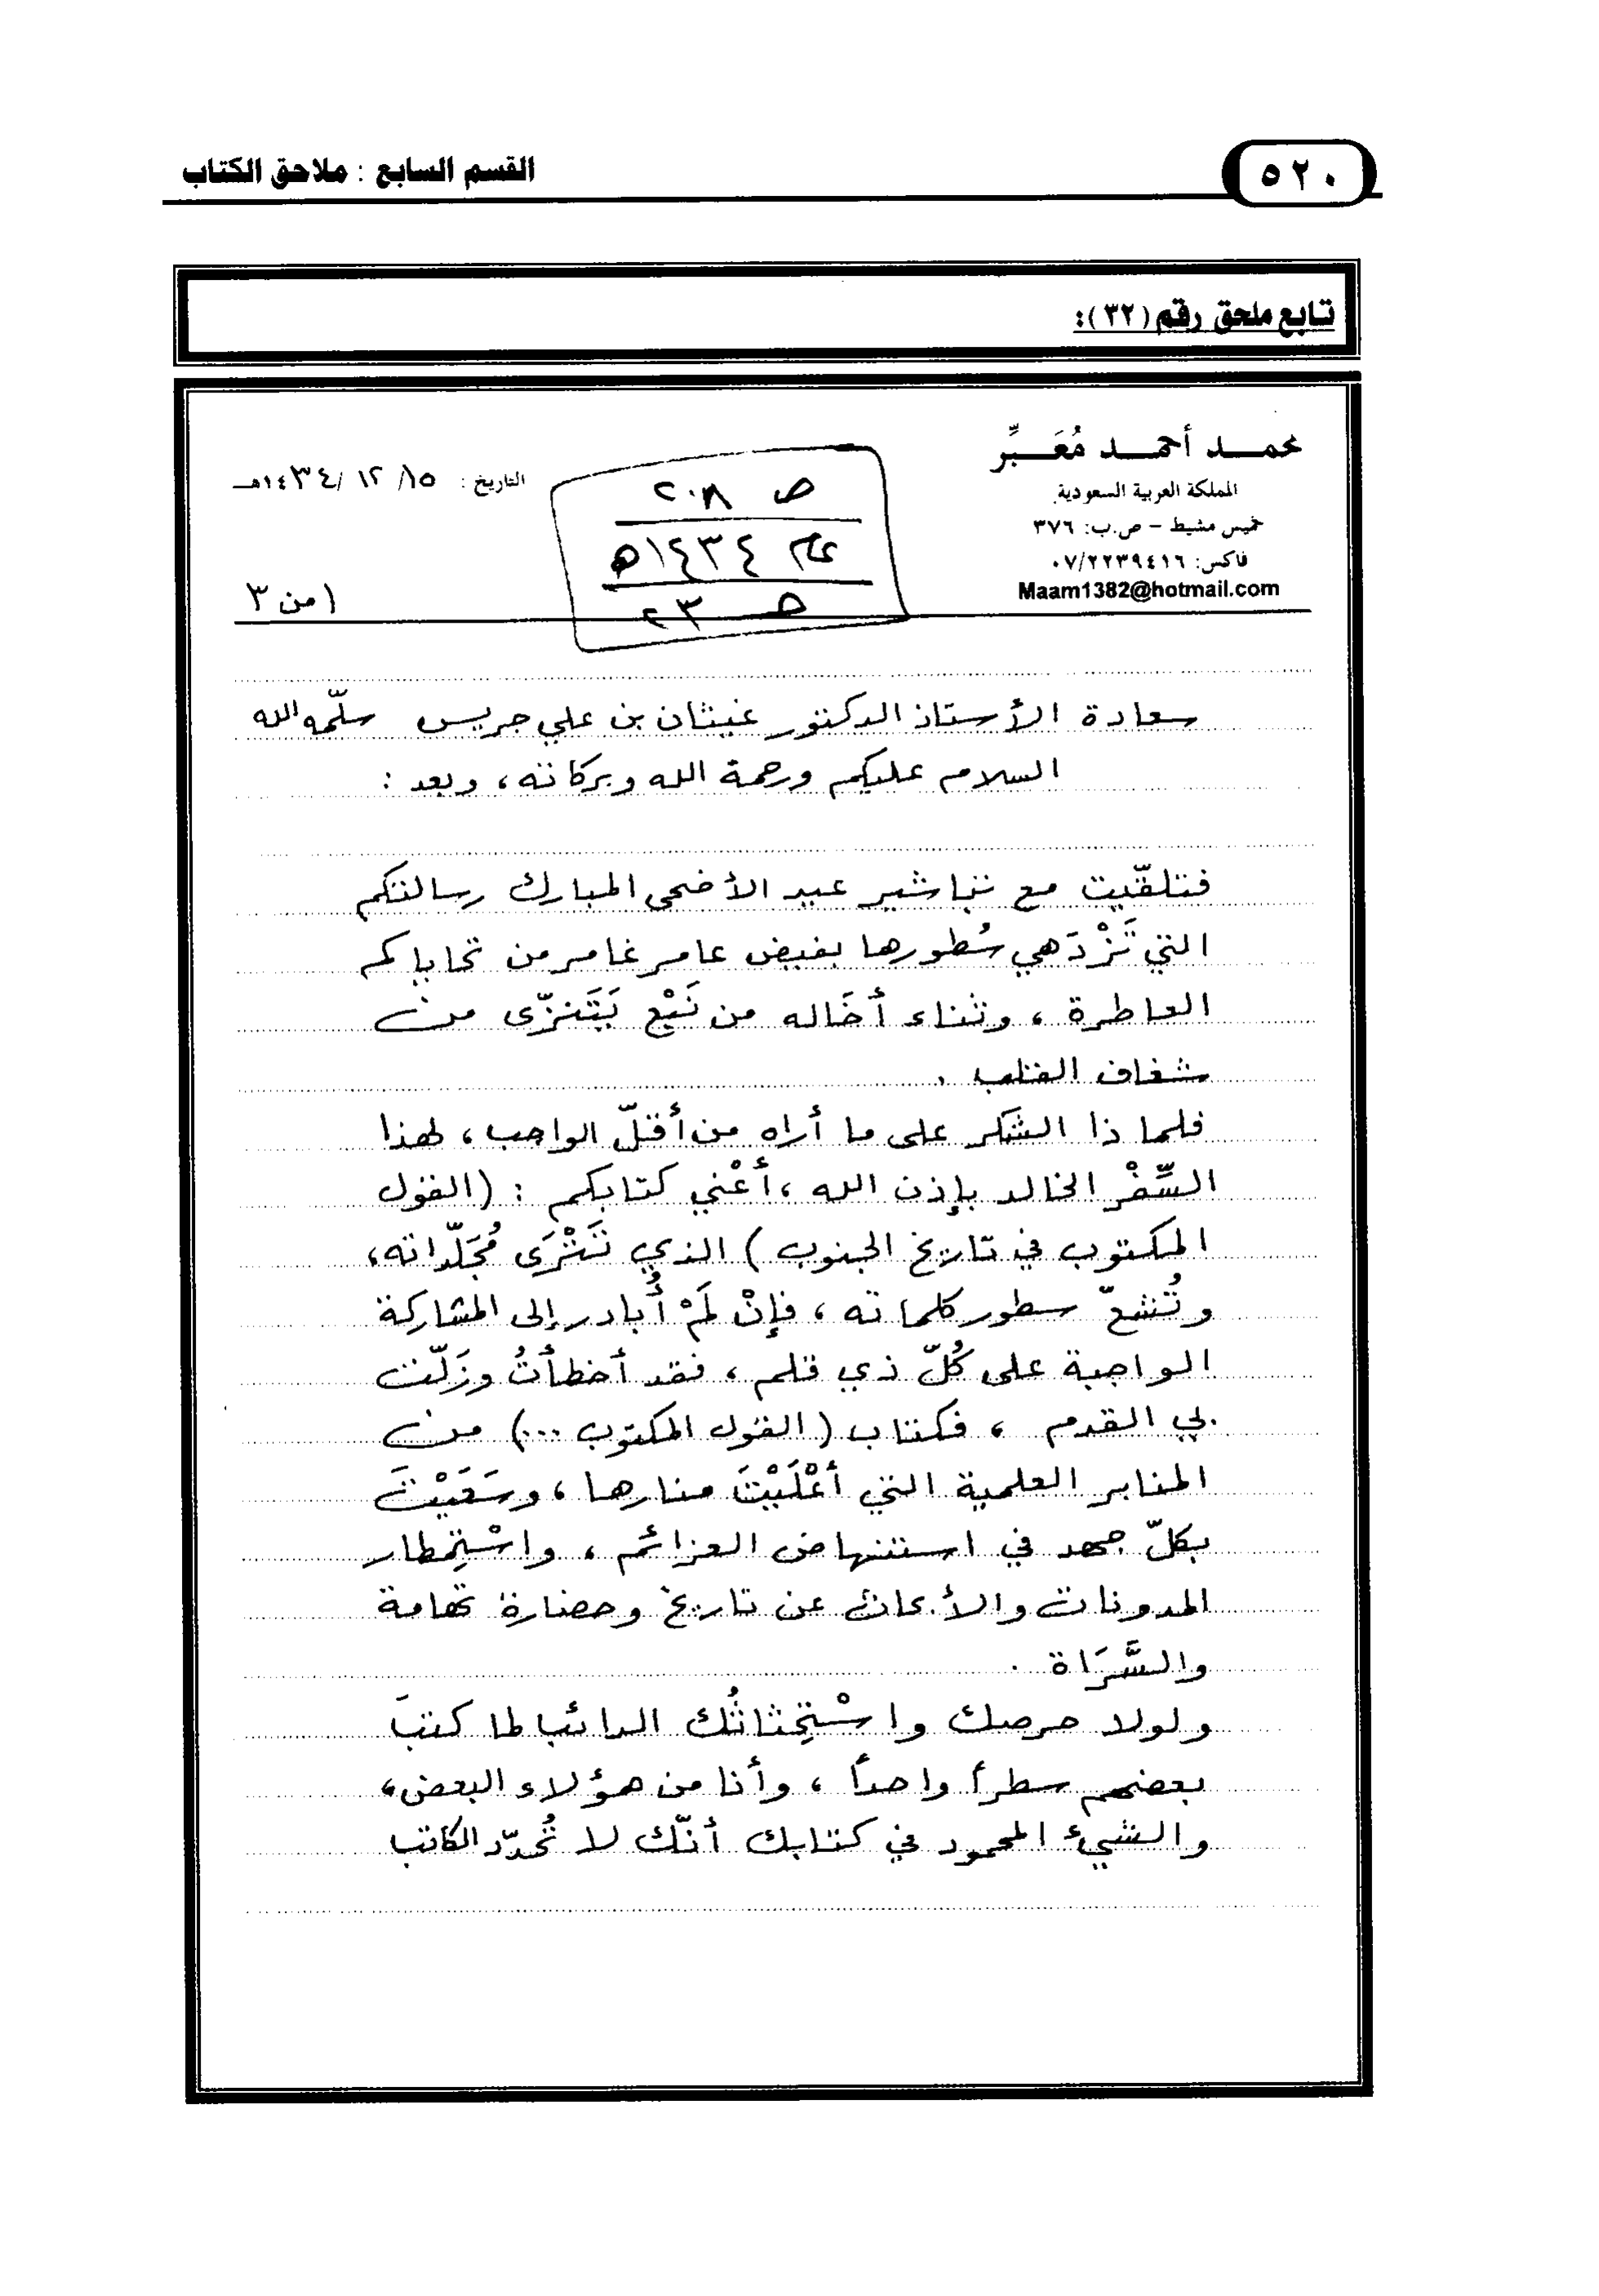 القسم السابع : ملاحق الكتاب
٥٢٠
تابع ملحق رقم (٣٢):
محمد أحمد مُعَبِّر
المملكة العربية السعودية
خميس مشيط - ص.ب: ٣٧٦
فاكس: ٠٧/٢٢٣٩٤١٦
Maam1382@hotmail.com
ص ٢٠٨
عام ١٤٣٤هـ
صـ ٢٣
التاريخ : ١٥/ ١٢ /١٤٣٤هـ
١ من ٣
سعادة الأستاذ الدكتور غيثان بن علي جريس سلّمه الله
السلام عليكم ورحمة الله وبركاته ، وبعد :
فتلقّيت مع تباشير عيد الأضحى المبارك رسالتكم
التي تَزْدَهي سُطورها بفيض عامر غامر من تحاياكم
العاطرة ، وثناء أخَاله من نَبْع يَتَنزّى من
شغاف القلب .
فلماذا الشكر على ما أراه من أقلّ الواجب ، لهذا
السِّفْر الخالد بإذن الله ، أعْني كتابكم : (القول
المكتوب في تاريخ الجنوب ) الذي تَتْرَى مُجَلّداته ،
وتُشعّ سطور كلماته ، فإنْ لَمْ أُبادر إلى المشاركة
الواجبة على كُلّ ذي قلم ، فقد أخطأتُ وزَلّت
بي القدم ، فكتاب ( القول المكتوب ...) من
المنابر العلمية التي أعْلَيْتَ منارها ، وسَعَيْتَ
بكلّ جهد في استنهاض العزائم ، واسْتِمطار
المدونات والأبحاث عن تاريخ وحضارة تهامة
والسَّرَاة .
ولولا حرصك واسْتِحْثاثُك الدائب لما كتبَ
بعضهم سطراً واحداً ، وأنا من هؤلاء البعض ،
والشيء المحمود في كتابك أنّك لا تُحدّد الكاتب